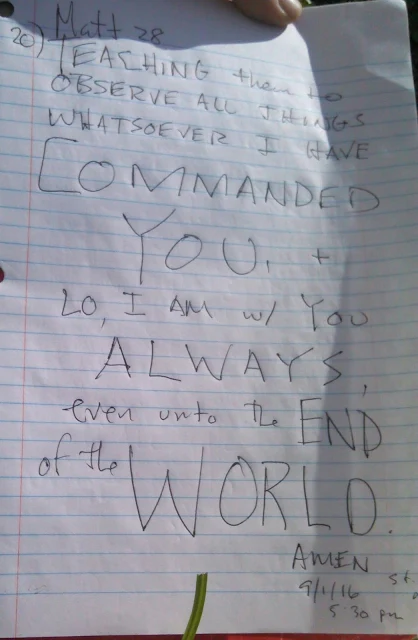 Matt 28
20) TEACHING them to
OBSERVE ALL THINGS
WHATSOEVER I HAVE
COMMANDED
YOU. +
LO, I AM w/ YOU
ALWAYS,
even unto the END
of the WORLD.
AMEN
9/1/16 st.
5:30 pm